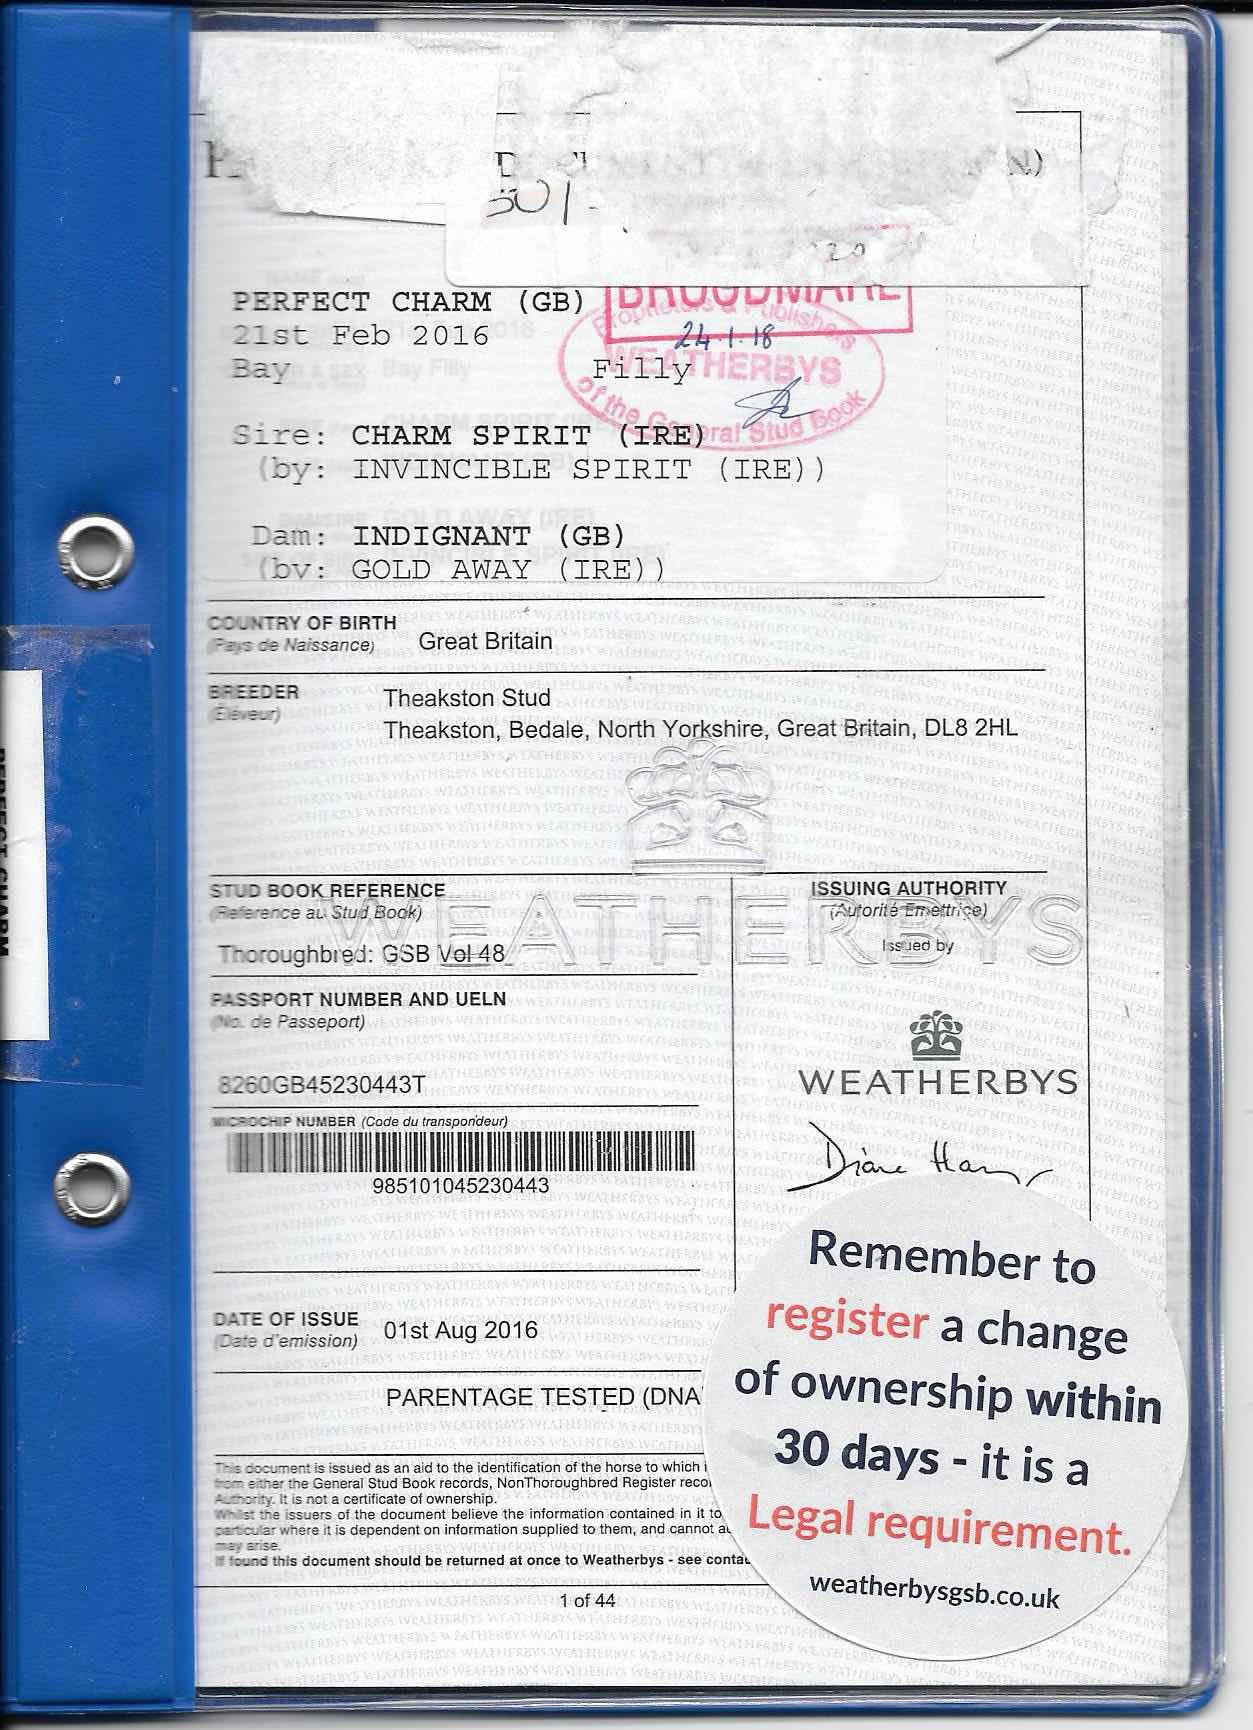 501-
20
BROODMARE
PERFECT CHARM (GB)
21st Feb 2016
24.1.18
Bay Filly
Proprietors & Publishers
WEATHERBYS
of the General Stud Book
Sire: CHARM SPIRIT (IRE)
(by: INVINCIBLE SPIRIT (IRE))
Dam: INDIGNANT (GB)
(by: GOLD AWAY (IRE))
COUNTRY OF BIRTH
(Pays de Naissance)
Great Britain
BREEDER
(Éleveur)
Theakston Stud
Theakston, Bedale, North Yorkshire, Great Britain, DL8 2HL
WEATHERBYS
STUD BOOK REFERENCE
(Reference au Stud Book)
Thoroughbred: GSB Vol 48
ISSUING AUTHORITY
(Autorité Emettrice)
Issued by
WEATHERBYS
PASSPORT NUMBER AND UELN
(No. de Passeport)
8260GB45230443T
MICROCHIP NUMBER (Code du transpondeur)
985101045230443
Diane
DATE OF ISSUE
(Date d'emission)
01st Aug 2016
PARENTAGE TESTED (DNA
This document is issued as an aid to the identification of the horse to which
from either the General Stud Book records, NonThoroughbred Register
Authority. It is not a certificate of ownership.
Whilst the issuers of the document believe the information contained in it to
particular where it is dependent on information supplied to them, and cannot
may arise.
If found this document should be returned at once to Weatherbys - see
1 of 44
Remember to
register a change
of ownership within
30 days - it is a
Legal requirement.
weatherbysgsb.co.uk
PERFECT CHARM